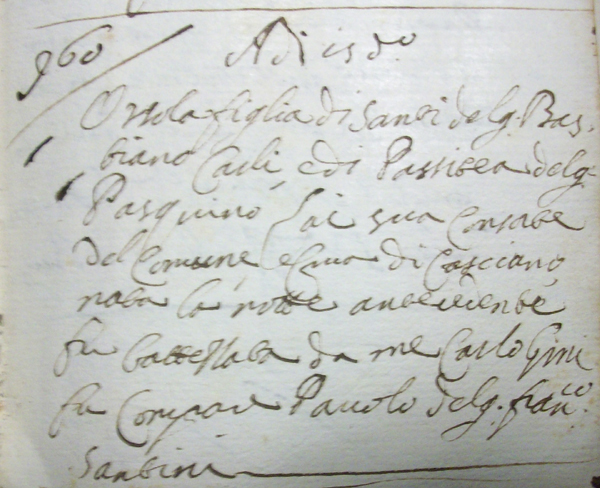 960 Adi is do
Orsola figlia di Santi del q. Bas,
tiano Carli, e di Passitea del q.
Pasquino sua Consorte
del Comune e Cura di Casciano
nata la notte antecedente
fu battezzata da me Carlo Gini
fu Compare Pauolo del q. Franco.
Santini